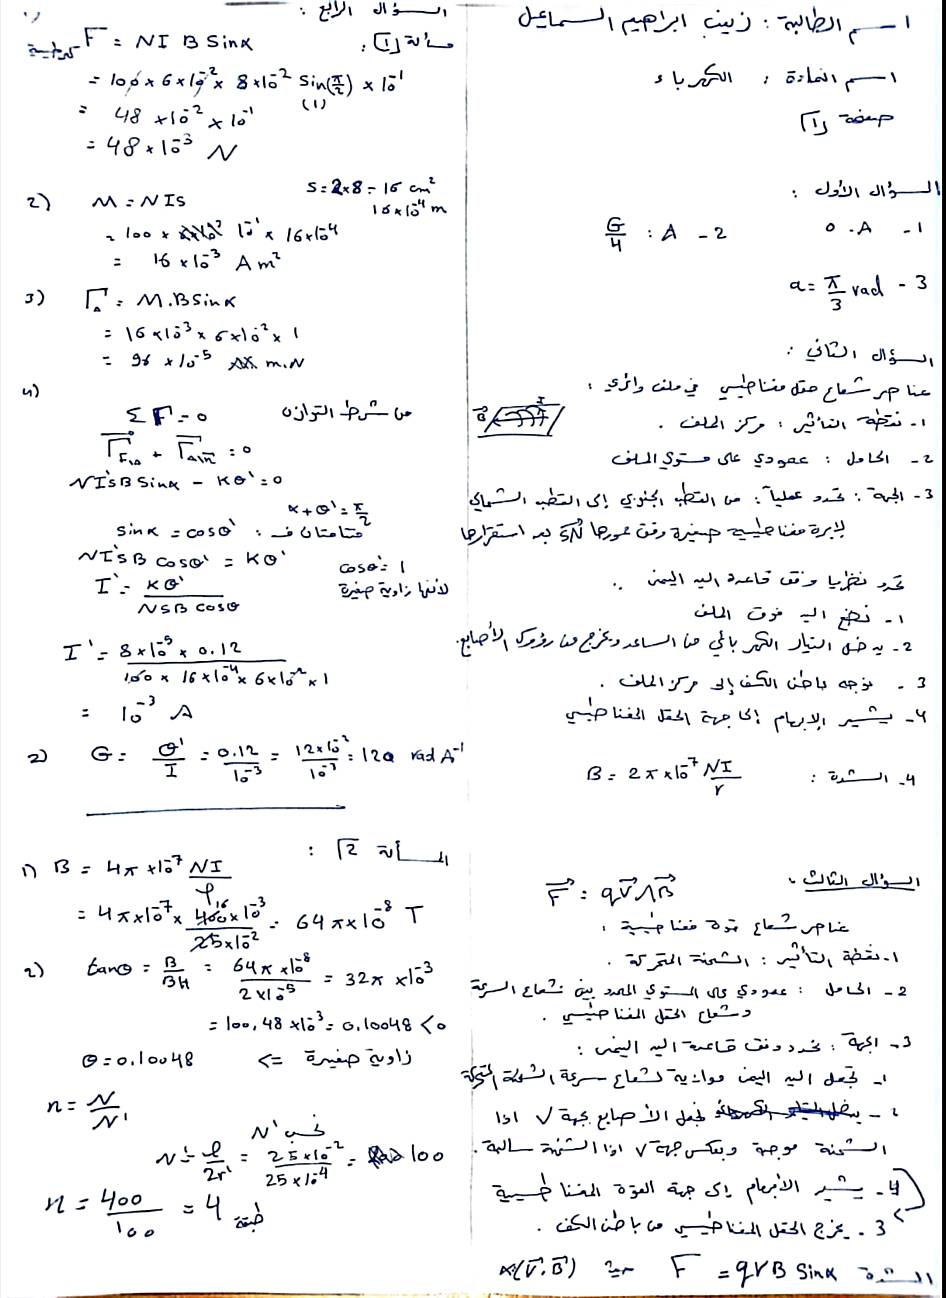 اسم الطالبة : زينب ابراهيم السماعيل
اسم المادة : الكهرباء
صفحة 1
السؤال الأول :
1 - A . 0
2 - A : G/4
3 - a = π/3 rad
السؤال الثاني :
عناصر شعاع حقل مغناطيسي في ملف دائري :
1 - نقطة التأثير : مركز الملف .
2 - الحامل : عمودي على مستوي الملف
3 - الجهة : تحدد عملياً : من القطب الجنوبي إلى القطب الشمالي
لإبرة مغناطيسية صغيرة وفق محورها SN بعد استقرارها
تحدد نظريا وفق قاعدة اليد اليمنى .
1 - نضع اليد فوق الملف
2 - يدخل التيار الكهربائي من الساعد ويخرج من رؤوس الأصابع.
3 - نوجه باطن الكف إلى مركز الملف .
4 - يشير الإبهام إلى جهة الحقل المغناطيسي
4 - الشدة : B = 2π×10⁻⁷ NI/r
السؤال الثالث .
F = qV Λ B
عناصر شعاع قوة مغناطيسية :
1 - نقطة التأثير : الشحنة المتحركة .
2 - الحامل : عمودي على المستوي المحدد بين شعاع السرعة
وشعاع الحقل المغناطيسي .
3 - الجهة : تحدد وفق قاعدة اليد اليمنى :
1 - نجعل اليد اليمنى موازية لشعاع سرعة الشحنة المتحركة
2 - نجعل الأصابع بجهة V اذا
الشحنة موجبة وبعكس جهة V اذا الشحنة سالبة .
4 - يشير الأبهام إلى جهة القوة المغناطيسية
3 - يخرج الحقل المغناطيسي من باطن الكف .
الشدة F = qVB Sinα حيث α(V.B)
السؤال الرابع :
مسألة 1 :
1) F كهرطيسية = NI B Sinα
= 100 × 6×10⁻² × 8×10⁻² Sin(π/2) × 10⁻¹
(1)
= 48 ×10⁻² × 10⁻¹
= 48×10⁻³ N
2) M = NIS S = 2×8 = 16 cm²
16×10⁻⁴ m
= 100 × 10⁻¹ × 16×10⁻⁴
= 16 ×10⁻³ A m²
3) Γ = M.B Sinα
= 16×10⁻³ × 6×10⁻² × 1
= 96 ×10⁻⁵ m.N
4)
ΣΓ = 0 من شرط التوازن
NI'SB Sinα - Kθ' = 0
α + θ' = π/2
sinα = cosθ' : متتامتان ف
NI'SB cosθ' = Kθ'
cosθ' = 1
I' = Kθ'/NSB cosθ لأنها زاوية صغيرة
I' = 8×10⁻⁵ × 0.12/100 × 16×10⁻⁴ × 6×10⁻² × 1
= 10⁻³ A
2) G = θ'/I = 0.12/10⁻³ = 12×10⁻²/10⁻³ = 120 rad A⁻¹
المسألة 2 :
1) B = 4π×10⁻⁷ NI/ℓ
= 4π×10⁻⁷ × 400×10⁻³/25×10⁻² = 64π×10⁻⁸ T
2) tanθ = B/BH = 64π×10⁻⁸/2×10⁻⁵ = 32π ×10⁻³
= 100,48 ×10⁻³ = 0,10048 < 0
θ = 0,10048 <= زاوية صغيرة
n = N/N'
نحسب N'
N' = ℓ/2r' = 25×10⁻²/25×10⁻⁴ = 100
n = 400/100 = 4 طبقة